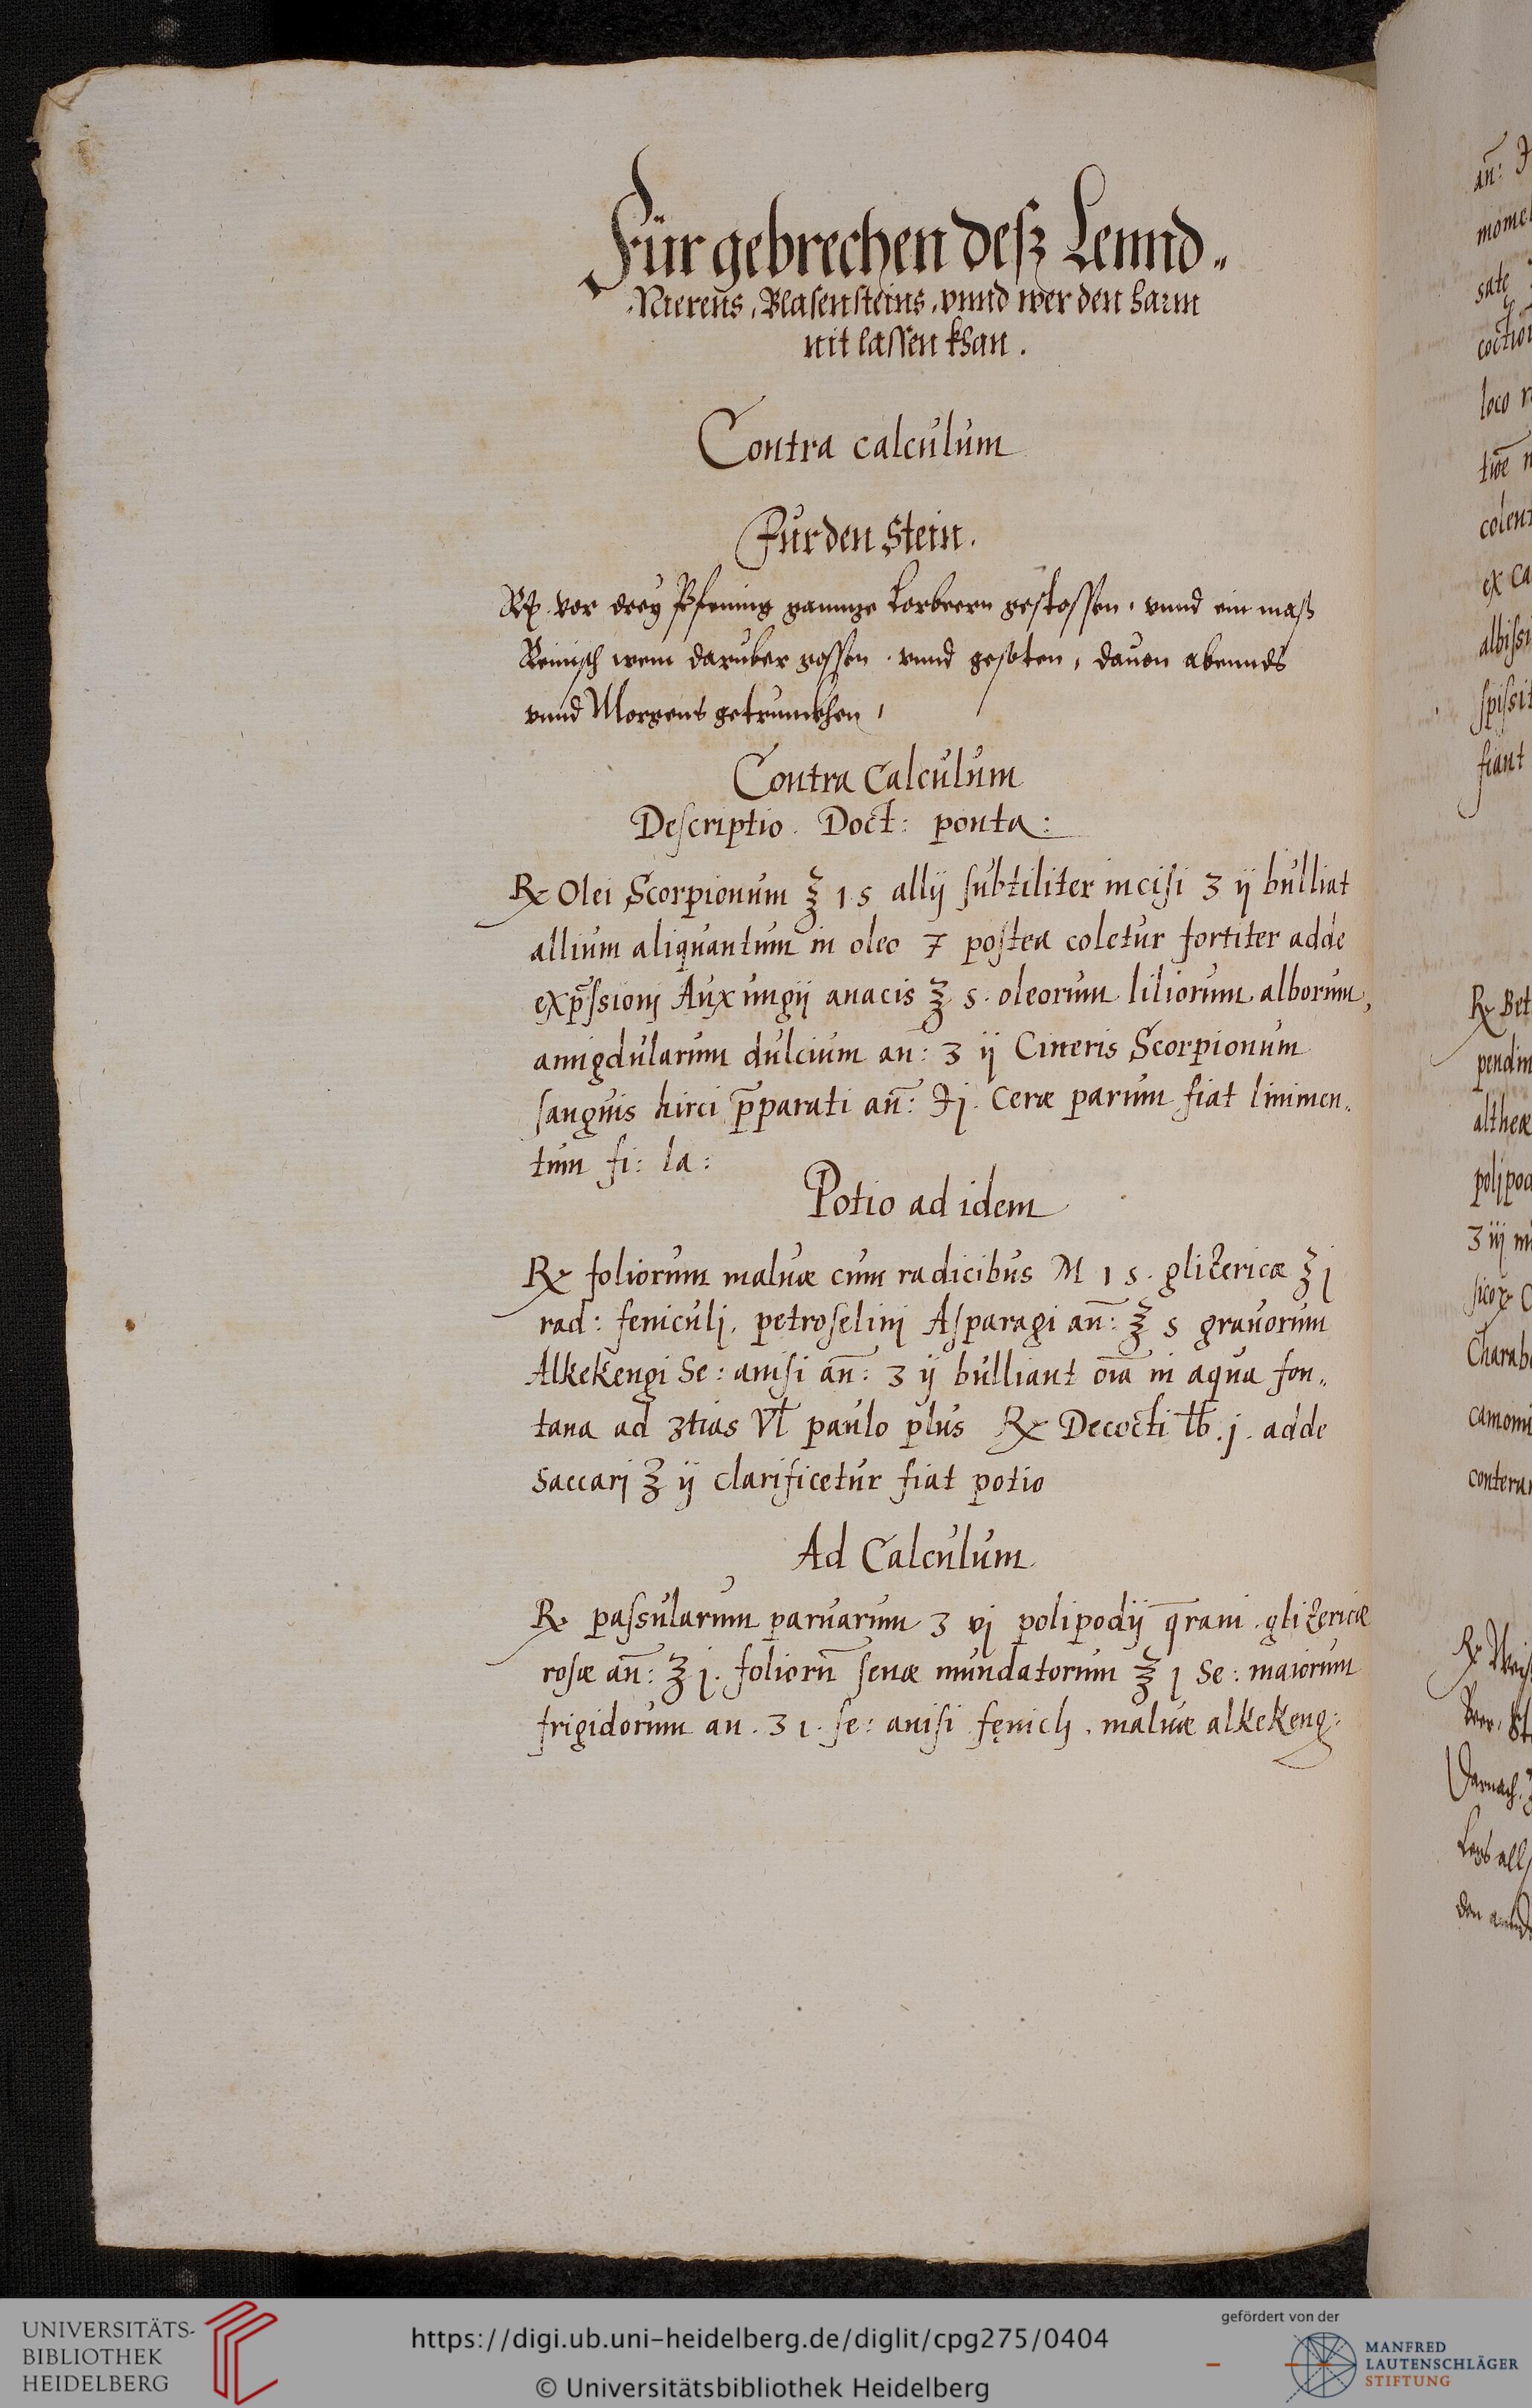 Für gebrechen desz Lennd„
Nierens, Blasensteins, vnnd wer den harm
nit lassen khan.
Contra calculum
Für den Stein.
Rp. vor drey Pfening gannze Lorbeern gestossen, vnnd ein maß
Reinisch wein daruber gossen, vnnd gesoten, dauon abennds
vnnd Morgens getrunckhen,
Contra Calculum
Descriptio. Doct: ponta:
℞ Olei Scorpionum ℥ 1 s allij subtiliter incisi ʒ ij bulliat
allium aliquantum in oleo 7 postea coletur fortiter adde
exp̄ssionj Auxungij anacis ℥ s. oleorum liliorum alborum,
amigdularum dulcium an: ʒ ij Cineris Scorpionum
sanguis hirci p̄parati an̄: ℈j. Ceræ parum fiat linimen„
tum fi: la:
Potio ad idem
℞ foliorum maluæ cum radicibus M 1 s. glizericæ ℥j
rad: feniculj, petroselinj Asparagi an̄: ℥ s grauorum
Alkekengi Se: anisi an̄: ʒ ij bulliant oīa in aqua fon„
tana ad 3tias Vl paulo plus ℞ Decocti lb. j. adde
saccarj ℥ ij clarificetur fiat potio
Ad Calculum
℞ passularum paruarum ʒ vj polipodij q̄rani. glizericiæ
rosæ an̄: ℥ j. foliorū senæ mundatorum ℥ j Se: maiorum
frigidorum an. ʒ 1. se: anisi fęnich, maluæ alkekeng:
an̄:
mome
sate
coctio
loco
colent
ex ca
albiss
spissit
fiant
℞ Bet
pendin
altheæ
polipod
ʒ iij
Charab
camomi
conterun
Darnach
den
UNIVERSITÄTS-
BIBLIOTHEK
HEIDELBERG
https://digi.ub.uni-heidelberg.de/diglit/cpg275/0404
© Universitätsbibliothek Heidelberg
gefördert von der
MANFRED
LAUTENSCHLÄGER
STIFTUNG